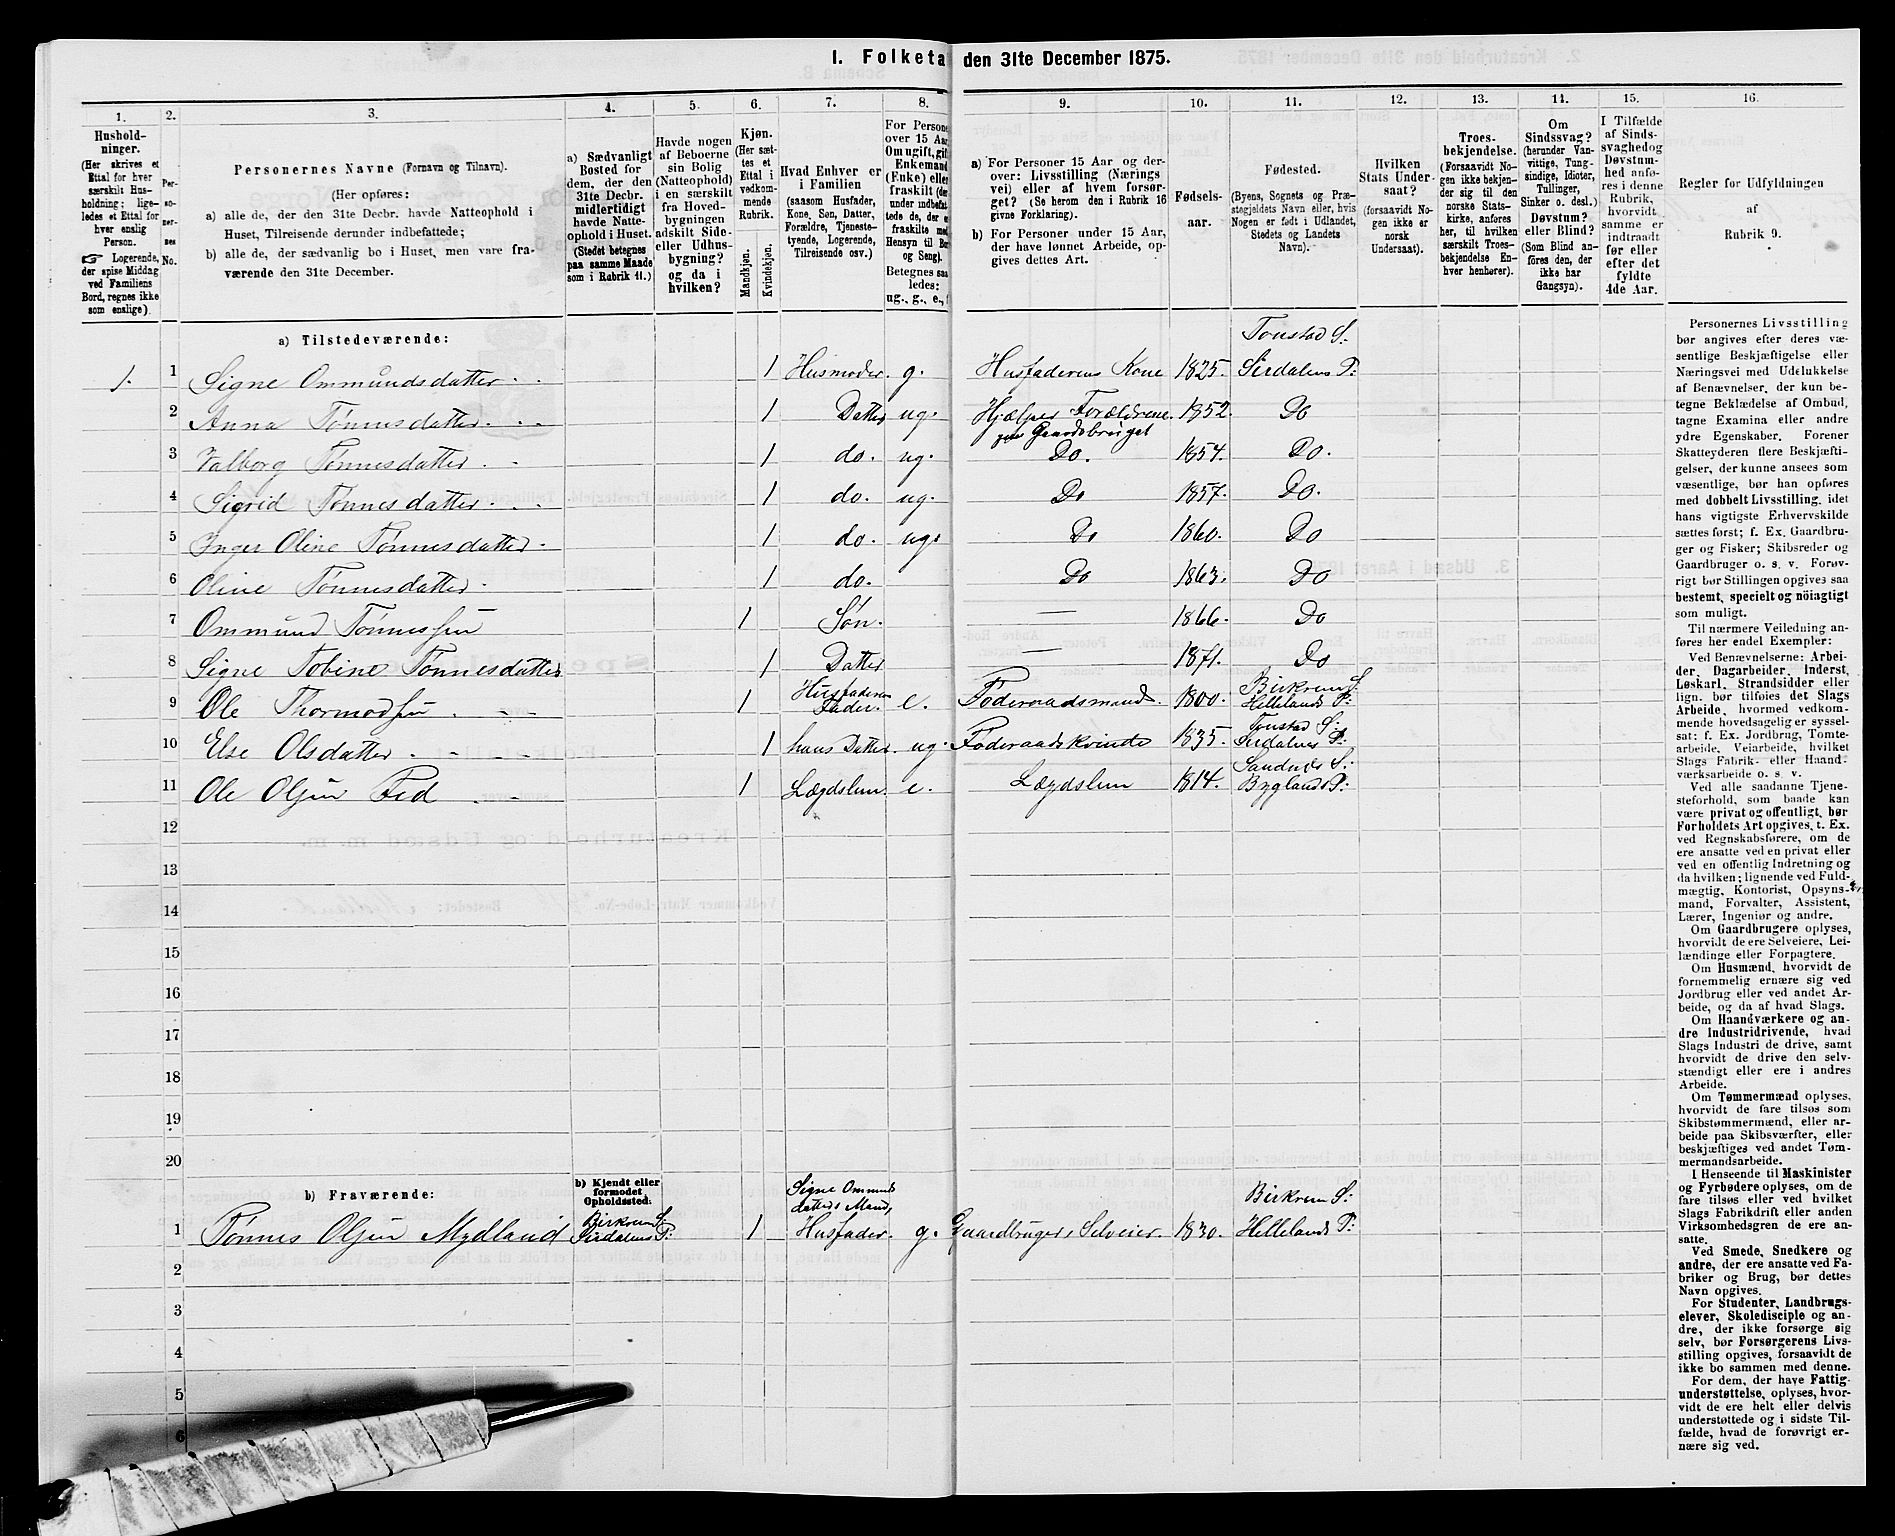 I. Folketa den 31te December 1875.
1. 2. 3. 4. 5. 6. 7. 8. 9. 10. 11. 12. 13. 14. 15. 16.
Hushold-
ninger.
(Her skrives et
Ettal for hver
særskilt Hus-
holdning; lige-
ledes et Ettal for
hver enslig
Person.
☞ Logerende,
der spise Middag
ved Familiens
Bord, regnes ikke
som enslige).
Per-
so-
ner-
nes
No.
Personernes Navne (Fornavn og Tilnavn).
(Her opføres:
a) alle de, der den 31te Decbr. havde Natteophold i
Huset, Tilreisende derunder indbefattede;
b) alle de, der sædvanlig bo i Huset, men vare fra-
værende den 31te December.
a) Sædvanligt
Bosted for
dem, der den
31te Decbr.
midlertidigt
havde Natte-
ophold i Huset.
(Stedet betegnes
paa samme Maade
som i Rubrik 11.)
Havde nogen
af Beboerne
sin Bolig
(Natteophold)
i en særskilt
fra Hoved-
bygningen
adskilt Side-
eller Udhus-
bygning?
og da i
hvilken?
Kjøn.
(Her sæt-
tes et
Ettal i
vedkom-
mende
Rubrik.
Mandkjøn.
Kvindekjøn.
Hvad Enhver er
i Familien
(saasom Husfader,
Kone, Søn, Datter,
Forældre, Tjeneste-
tyende, Logerende,
Tilreisende osv.)
For Persone
over 15 Aar
Om ugift, gift
Enkemand
(Enke) eller
fraskilt (der
under indbefat-
tede de, der er
fraskilte med
Hensyn til Bo
og Seng).
Betegnes saa
ledes:
ug., g., e.,
a) For Personer 15 Aar og der-
over: Livsstilling (Nærings
vei) eller af hvem forsør-
get? (Se herom den i Rubrik 16
givne Forklaring).
b) For Personer under 15 Aar,
der have lønnet Arbeide, op-
gives dettes Art.
Fødsels-
aar.
Fødested.
(Byens, Sognets og Præ-
stegjeldets Navn eller, hvis
Nogen er født i Udlandet,
Stedets og Landets
Navn).
Hvilken
Stats Under-
saat?
(forsaavidt No-
gen ikke er
norsk
Undersaat).
Troes-
bekjendelse.
(Forsaavidt No-
gen ikke bekjen-
der sig til den
norske Stats-
kirke, anføres
her, til hvilken
særskilt Troes-
bekjendelse En-
hver henhører).
Om
Sindssvag?
(herunder Van-
vittige, Tung-
sindige, Idioter,
Tullinger,
Sinker o. desl.)
Døvstum?
eller Blind?
(Som Blind an-
føres den, der
ikke har
Gangsyn).
I Tilfælde
af Sinds-
svaghed og
Døvstum-
hed anfø-
res i denne
Rubrik,
hvorvidt
samme er
indtraadt
før eller
efter det
fyldte
4de Aar.
Regler for Udfyldningen
af
Rubrik 9.
a) Tilstedeværende:
Tonstad S.
1. 1 Signe Ommundsdatter 1 Husmoder. g. Husfaderens Kone 1825. Sirdalens P:
2 Anna Tønnesdatter 1 Datter ug. Hjælper Forældrene 1852. Do
Gaardsbruget
3 Valborg Tønnesdatter 1 do. ug. Do. 1854. Do.
4 Sigrid Tønnesdatter 1 do. ug. Do 1857. Do.
5 Inger Oline Tønnesdatter 1 do. ug. Do 1860. Do
6 Oline Tønnesdatter 1 do. Do 1863. Do
7 Ommund Tønnessen 1 Søn. — 1866. Do
8 Signe Tobine Tønnesdatter 1 Datter — 1871. Do
Husfaderen Birkrem S:
9 Ole Thormodsen 1 Fader. e. Føderaadsmand. 1800. Hellelands P:
Tonstad S:
10 Else Olsdatter 1 hans Datter. ug. Føderaadskvinde 1835. Sirdalens P:
Sandnæs S:
11 Ole Olsen Fed 1 Lægdslem. e. Lægdslem 1814. Byglands P:
12
13
14
15
16
17
18
19
20
b) Fraværende:
b) Kjendt eller
formodet
Opholdssted.
Signe Ommunds
datters Mand, Birkrem S:
Birkrem S.
1 Tønnes Olsen Mydland Sirdalens P: 1 Husfader. g. Gaardbruger, Selveier. 1830. Hellelands P:
2
3
4
5
6
Personernes Livsstilling
bør angives efter deres væ-
sentlige Beskjæftigelse eller
Næringsvei med Udelukkelse
af Benævnelser, der kun be-
tegne Beklædelse af Ombud,
tagne Examina eller andre
ydre Egenskaber. Forener
Skatteyderen flere Beskjæfti-
gelser, der kunne ansees som
væsentlige, bør han opføres
med dobbelt Livsstilling, idet
hans vigtigste Erhvervskilde
sættes først; f. Ex. Gaardbru-
ger og Fisker; Skibsreder og
Gaardbruger o. s. v. Forøv-
rigt bør Stillingen opgives saa
bestemt, specielt og nöiagtigt
som muligt.
Til nærmere Veiledning an-
føres her endel Exempler:
Ved Benævnelserne: Arbei-
der, Dagarbeider, Inderst,
Løskarl, Strandsidder eller
lign. bør tilføies det Slags
Arbeide, hvormed vedkom-
mende hovedsagelig er syssel-
sat: f. Ex. Jordbrug, Tomte-
arbeide, Veiarbeide, hvilket
Slags Fabrik- eller Haand-
værksarbeide o. s. v.
Ved alle saadanne Tjene-
steforhold, som baade kan
være privat og offentligt, bør
Forholdets Art opgives, t. Ex.
ved Regnskabsførere, om de
ere ansatte ved en privat eller
ved en offentlig Indretning og
da hvilken; lignende ved Fuld-
mægtig, Kontorist, Opsyns-
mand, Forvalter, Assistent,
Lærer, Ingeniør og andre.
Om Gaardbrugere oplyses,
hvorvidt de ere Selveiere, Lei-
lændinge eller Forpagtere.
Om Husmænd, hvorvidt de
fornemmelig ernære sig ved
Jordbrug eller ved andet Ar-
beide, og da af hvad Slags.
Om Haandværkere og an-
dre Industridrivende, hvad
Slags Industri de drive, samt
hvorvidt de drive den selv-
stændigt eller ere i andres
Arbeide.
Om Tømmermænd oplyses,
hvorvidt de fare tilsøs som
Skibstømmermænd, eller ar-
beide paa Skibsværfter, eller
beskjæftiges ved andet Tøm-
mermandsarbeide.
I Henseende til Maskinister
og Fyrbødere oplyses, om de
fare tilsøs eller ved hvilket
Slags Fabrikdrift eller anden
Virksomhedsgren de ere an-
satte.
Ved Smede, Snedkere og
andre, der ere ansatte ved Fa-
briker og Brug, bør dettes
Navn opgives.
For Studenter, Landbrugs-
elever, Skoledisciple og an-
dre, der ikke forsørge sig
selv, bør Forsørgerens Livs-
stilling opgives, forsaavidt de
ikke bo sammen med denne.
For dem, der have Fattig-
understøttelse, oplyses, hvor-
vidt de ere helt eller delvis
understøttede og i sidste Til-
fælde, hvad de forøvrigt er-
nære sig ved.